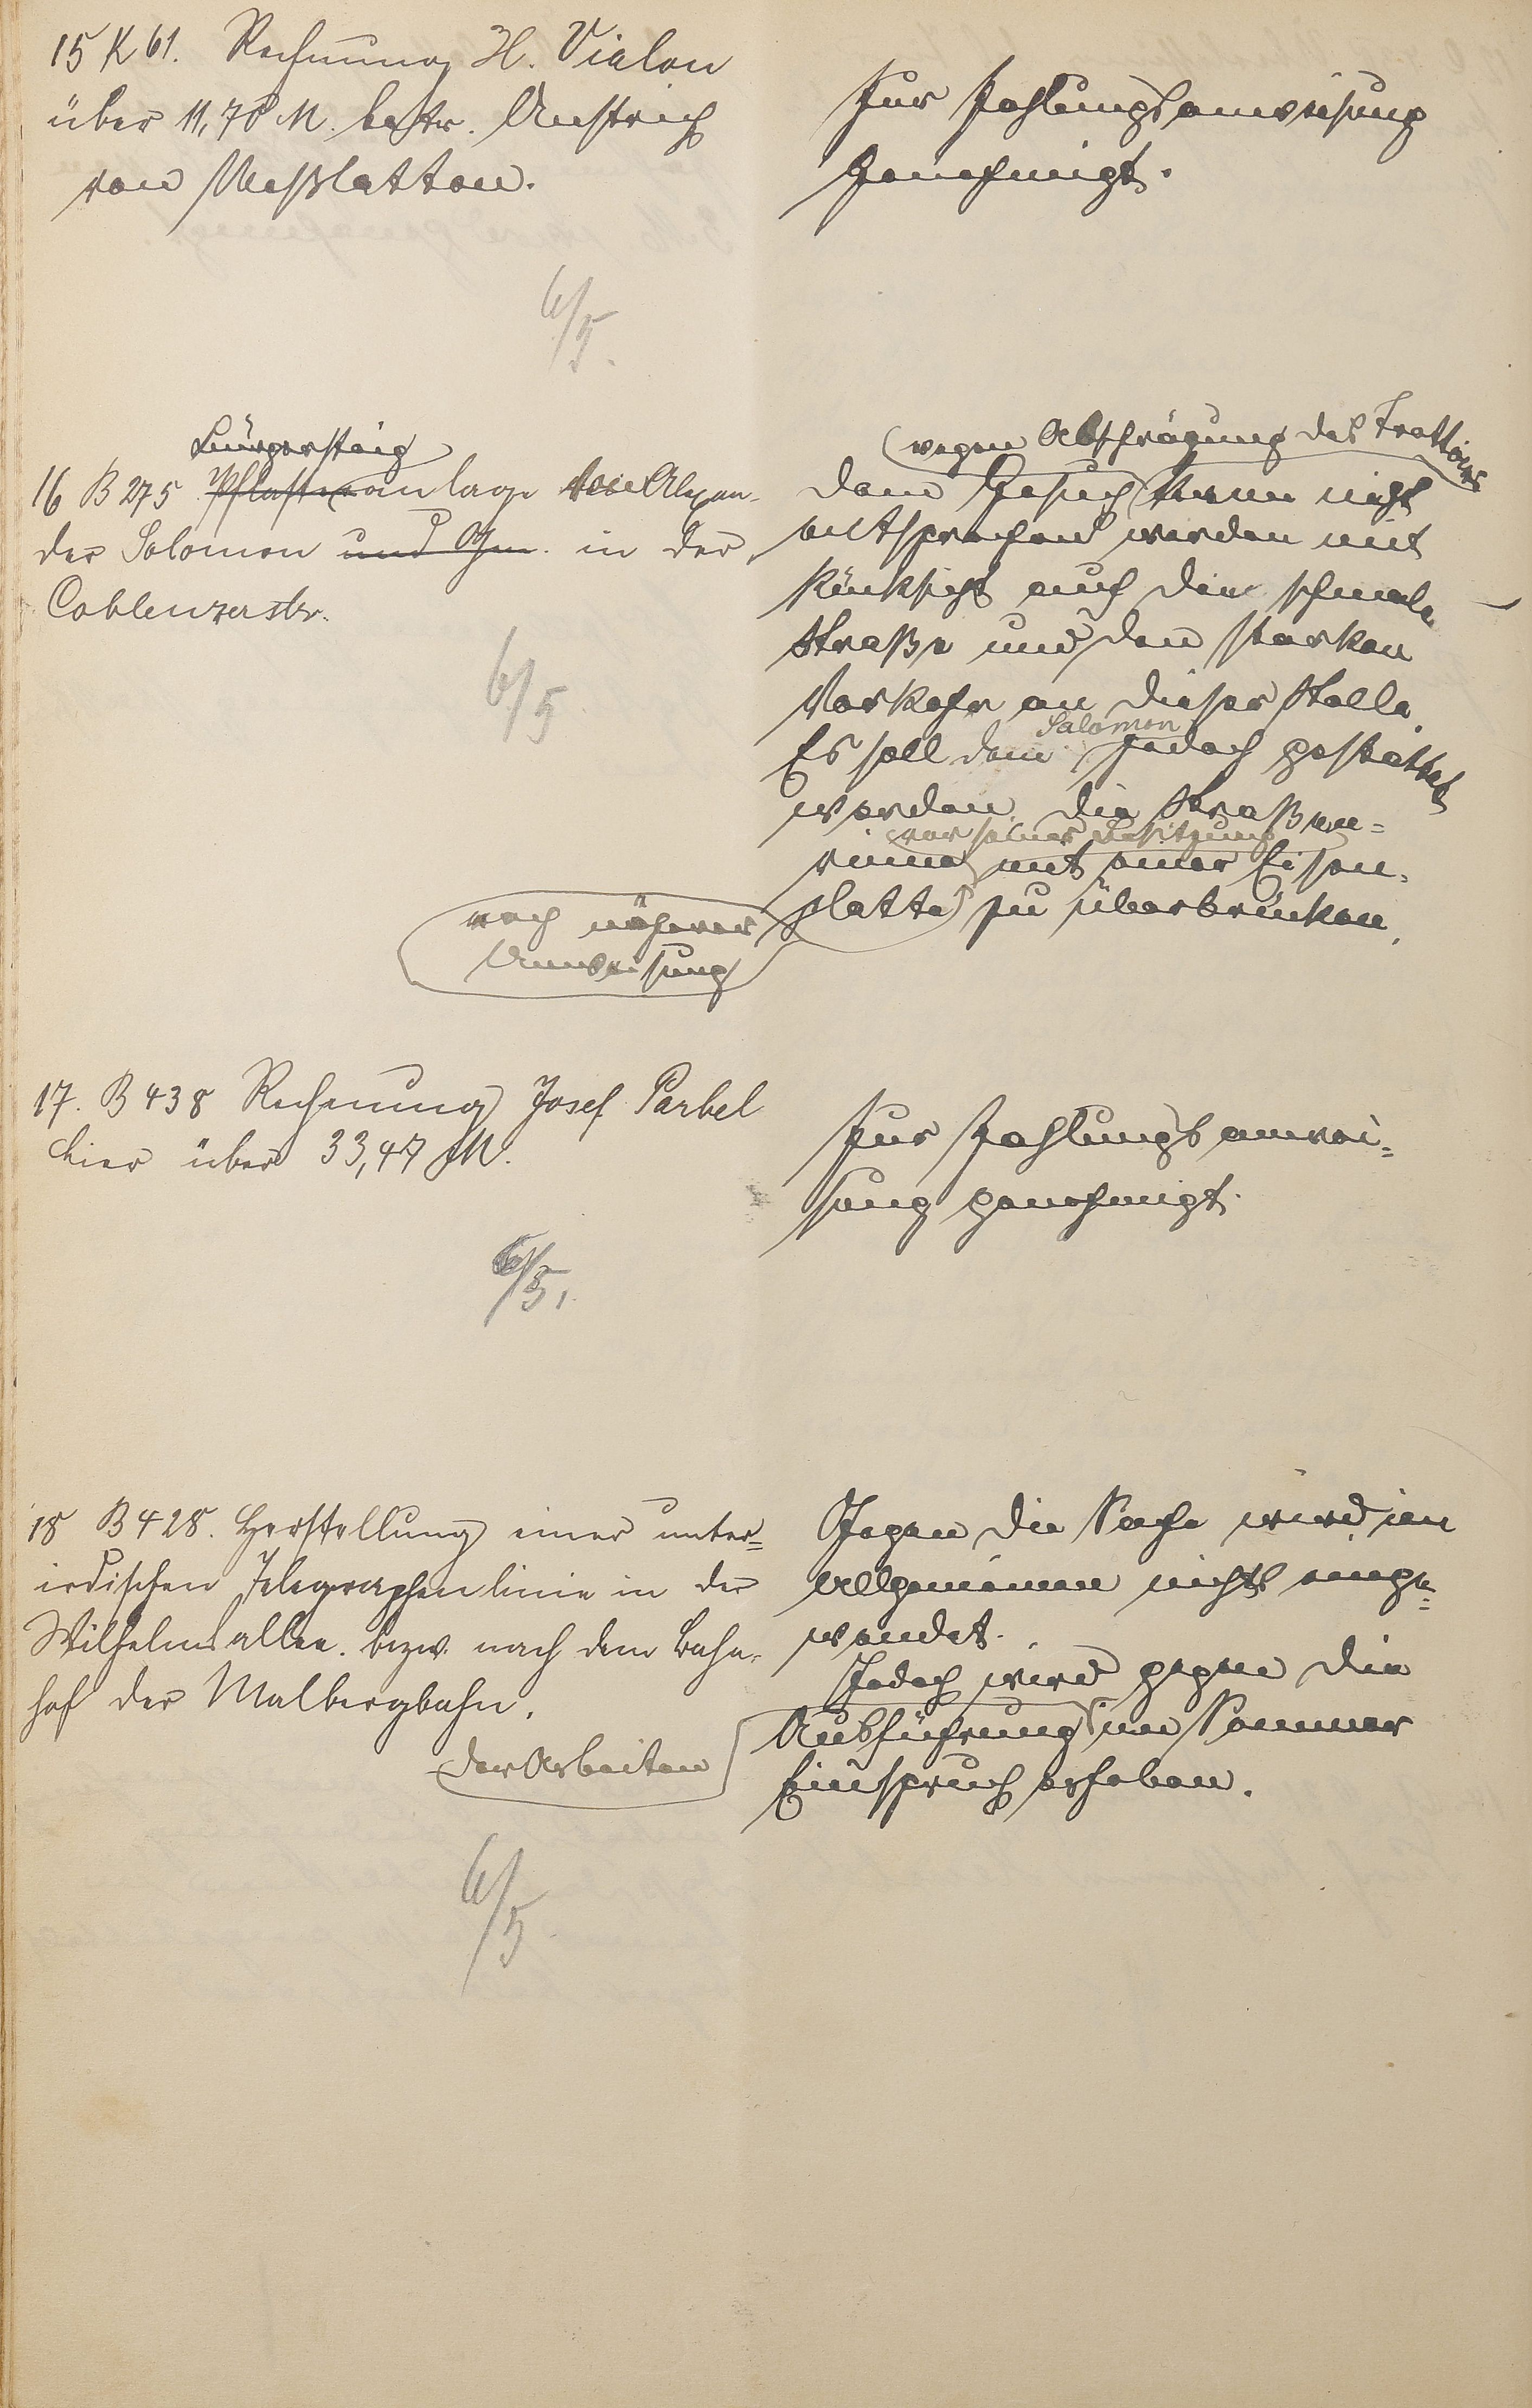 15 K 61. Rechnung H. Vialon
über 11,70 M. betr. Anstrich
von Meßlatten.
Zur Zahlungsanweisung
Genehmigt.
6/5.
Bürgersteig
16 B 275 Pflasteranlage Alexan-
der Salomon und Gen. in der
Coblenzerstr.
6/5
wegen Abschrägung des Trottoirs
Dem Gesuch kann nicht
entsprochen werden mit
Rücksicht auf die schmale
Straße und den starken
Verkehr an dieser Stelle.
Salomon
Es soll dem jedoch gestattet
werden, die Straßen-
vor seiner Besitzung
rinne mit einer Eisen-
platte zu überbrücken.
nach näherer
Anweisung
17. B 438 Rechnung Josef Parbel
hier über 33,47 M.
Zur Zahlungsanwei-
sung genehmigt.
6/5.
18 B 428. Herstellung einer unter-
irdischen Telegraphenlinie in der
Wilhelmsallee. bezw. nach dem Bahn-
hof der Malbergbahn.
Gegen die Sache wird im
Allgemeinen nichts einge-
wendet.
Jedoch wird gegen die
Ausführung im Sommer
Einspruch erhoben.
der Arbeiten
6/5